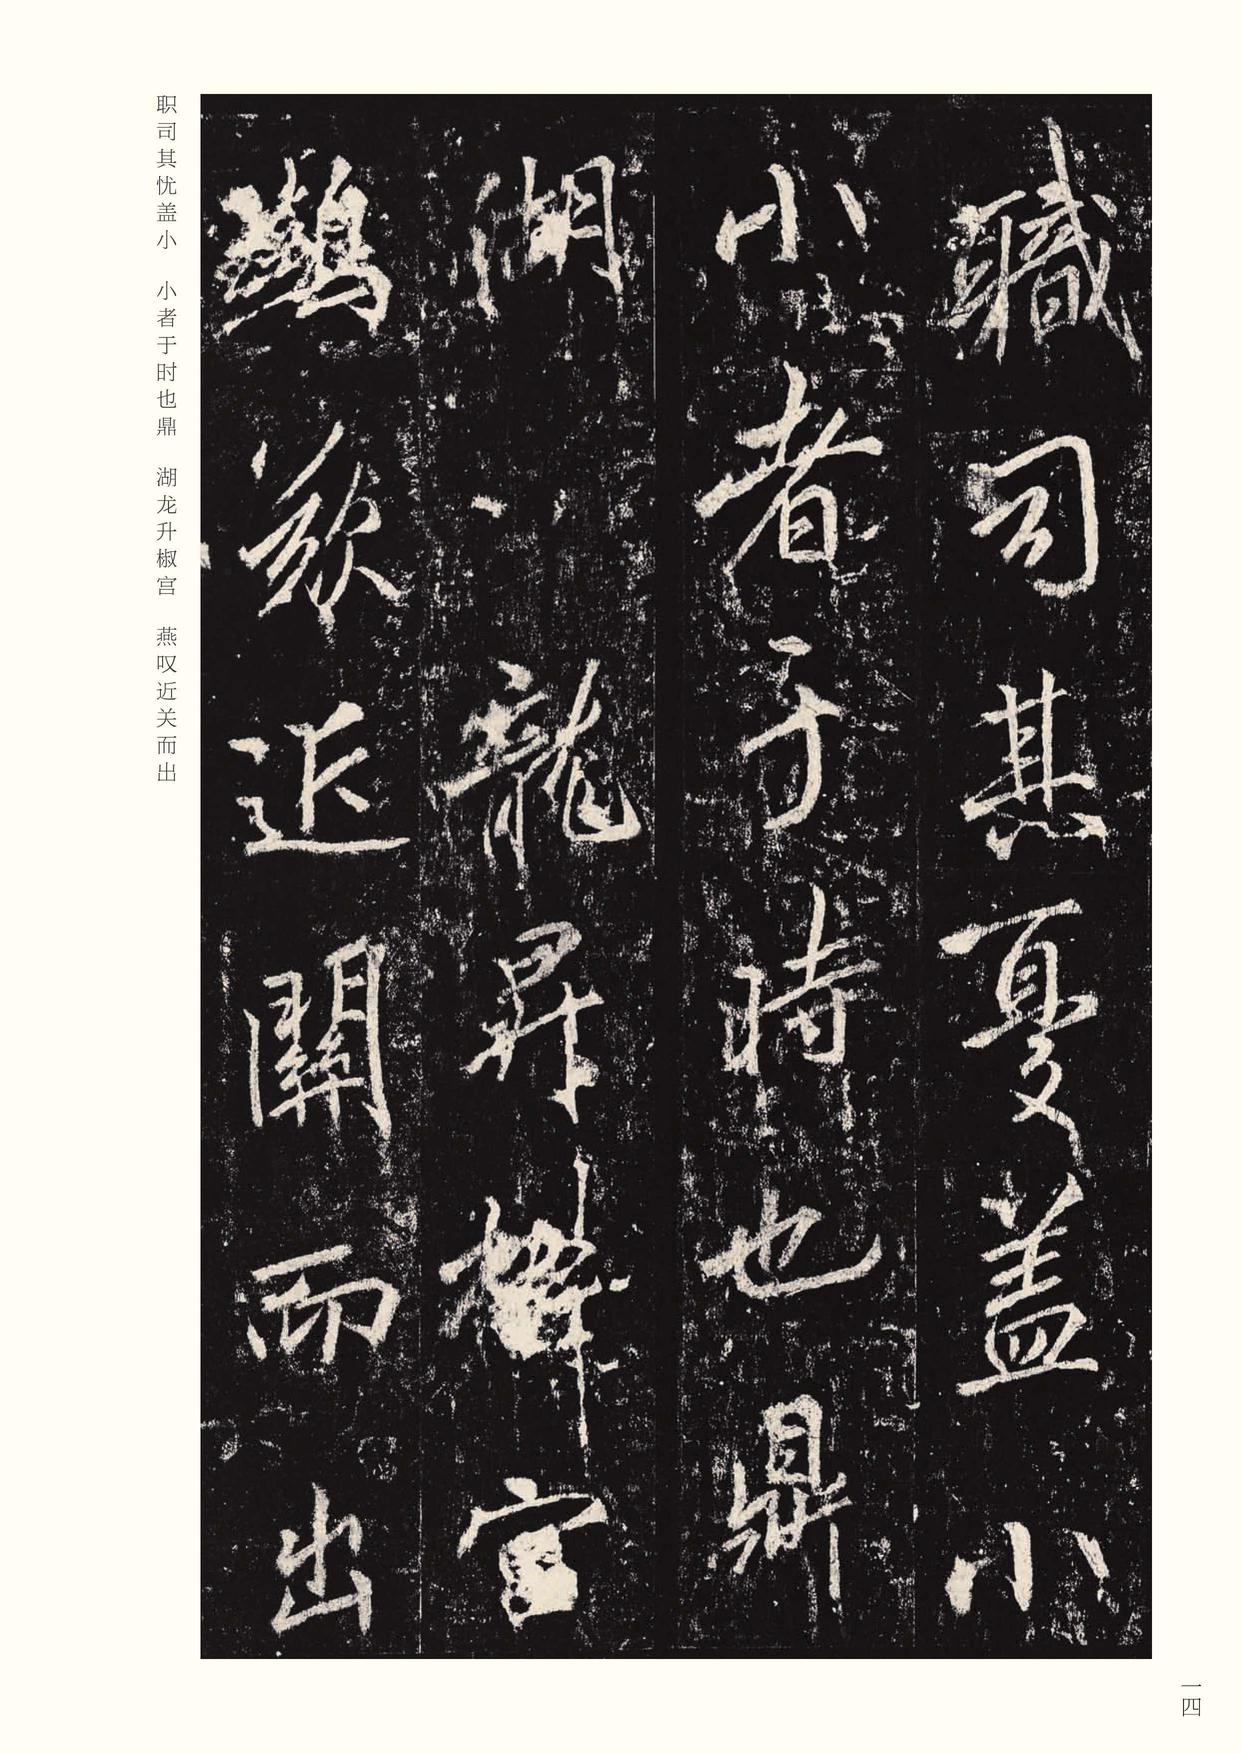 職司其憂盖小
小者于時也鼎
湖龍昇椒宮
鷰歎近關而出
职司其忧盖小　小者于时也鼎　湖龙升椒宫　燕叹近关而出
一四